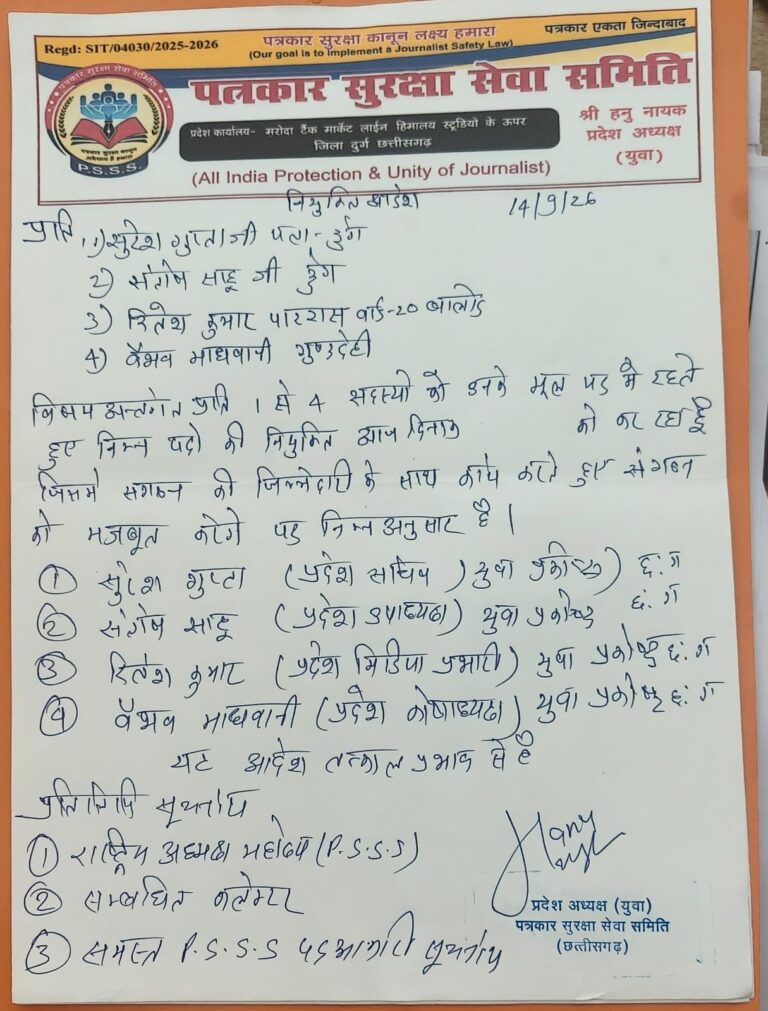 Regd: SIT/04030/2025-2026
पत्रकार सुरक्षा कानून लक्ष्य हमारा
(Our goal is to implement a Journalist Safety Law)
पत्रकार एकता जिन्दाबाद
पत्रकार सुरक्षा सेवा समिति
P.S.S.S.
प्रदेश कार्यालय- मरोदा टैंक मार्केट लाईन हिमालय स्टूडियो के ऊपर
जिला दुर्ग छत्तीसगढ़
(All India Protection & Unity of Journalist)
श्री हनु नायक
प्रदेश अध्यक्ष
(युवा)
नियुक्ति आदेश 14/9/26
प्रति 1) सुरेश गुप्ता जी पता - दुर्ग
2) संतोष साहू जी दुर्ग
3) रितेश कुमार वार्ड-20 बालोद
4) वैभव माधवानी गुण्डरदेही
विषय अन्तर्गत प्रति 1 से 4 सदस्यो को उनके मूल पद मे रहते
हुए निम्न पदो की नियुक्ति आज दिनांक को कर रहा हूँ
जिसमे संगठन की जिम्मेदारी के साथ कार्य करते हुए संगठन
को मजबूत करेगे पद निम्न अनुसार है |
① सुरेश गुप्ता (प्रदेश सचिव) युवा प्रकोष्ठ) छ: ग
② संतोष साहू (प्रदेश उपाध्यक्ष) युवा प्रकोष्ठ छ: ग
③ रितेश कुमार (प्रदेश मिडिया प्रभारी) युवा प्रकोष्ठ छ: ग
④ वैभव माधवानी (प्रदेश कोषाध्यक्ष) युवा प्रकोष्ठ छ: ग
यह आदेश तत्काल प्रभाव से है
प्रतिलिपि सूचनार्थ
① राष्ट्रिय अध्यक्ष महोदय (P.S.S.S)
② सम्बधित कलेक्टर
③ समस्त P.S.S.S पदाधिकारी सूचनार्थ
प्रदेश अध्यक्ष (युवा)
पत्रकार सुरक्षा सेवा समिति
(छत्तीसगढ़)